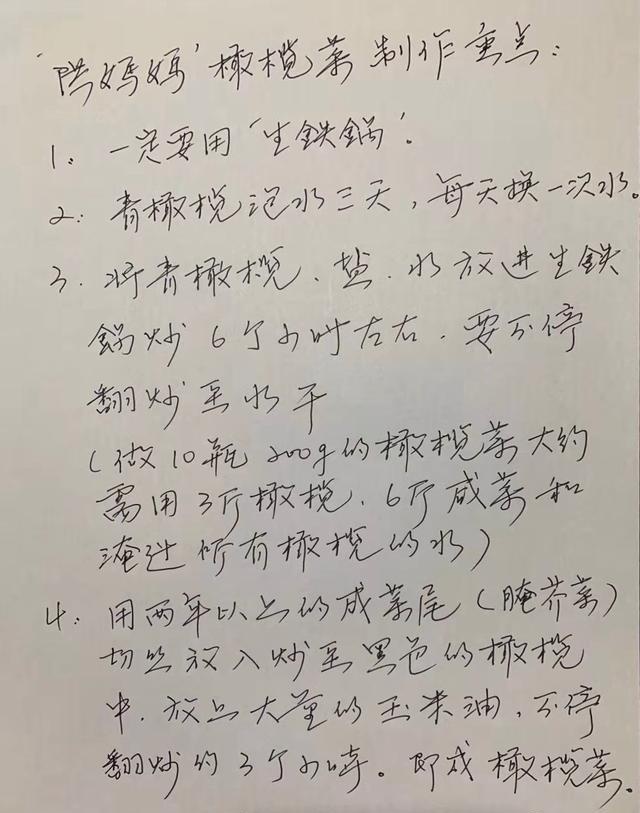 “洪妈妈”橄榄菜制作重点：
1. 一定要用“生鉄鍋”.
2. 青橄榄泡水三天，每天换一次水。
3. 将青橄榄、盐、水放进生鉄
鍋炒6个小时左右，要不停
翻炒至水干
(做10瓶200g的橄榄菜大约
需用3斤橄榄、6斤咸菜和
淹过所有橄榄的水)
4. 用两年以上的咸菜尾(腌芥菜)
切丝放入炒至黑色的橄榄
中，放上大量的玉米油，不停
翻炒约3个小時。即成橄榄菜。